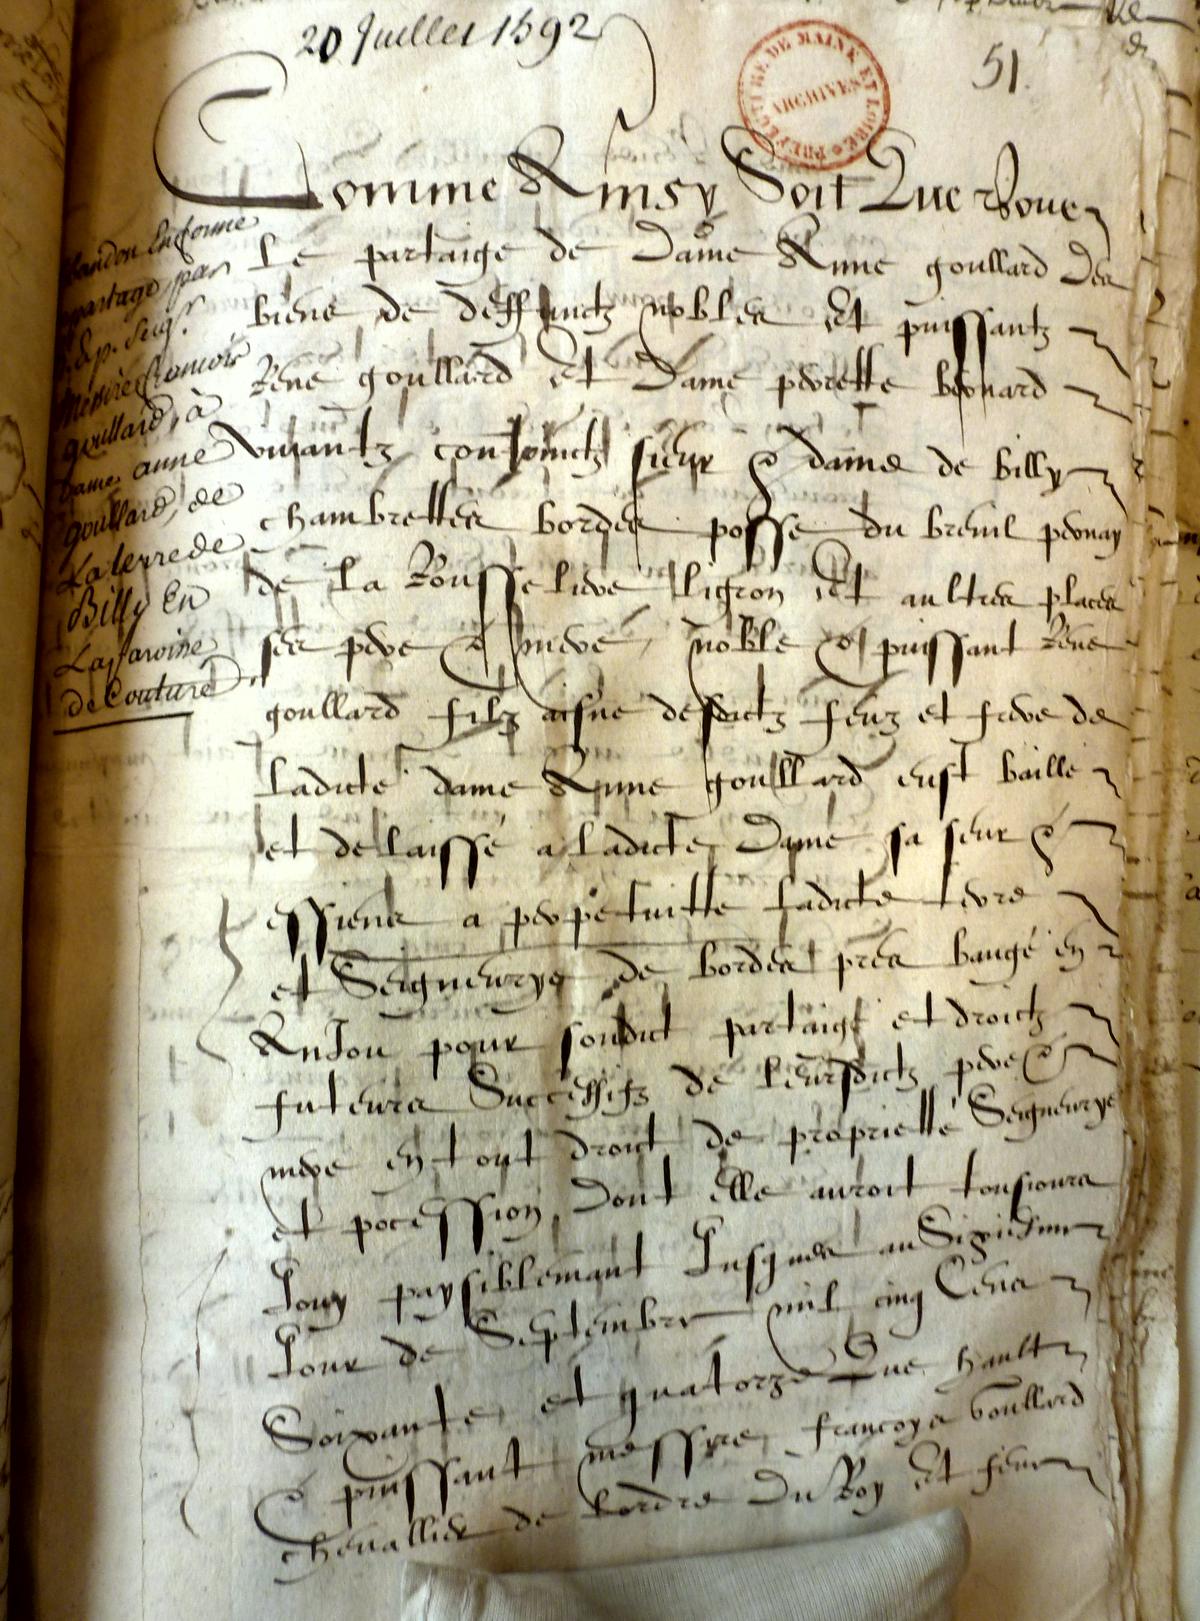 20 Juillet 1592
51.
PREFECTURE DE MAINE ET LOIRE
ARCHIVES
Comme Ainsy Soit Que pour
Le partaige de Dame Anne goullard des
biens de deffunctz nobles et puissantz
Rene goullard et Dame perrette
vivantz conjoinctz sieur & dame de billy
chambrettes bordes posse du breuil
de la Rousseliere ligron et aultres places
ses pere & mere, noble & puissant Rene
goullard filz aisne desdictz feuz et frere de
ladicte dame Anne goullard eust baille
et delaissé a ladicte Dame sa seur &
essiens a perpetuitte ladicte terre
et Seigneurye de bordes pres baugé en
Anjou pour sondict partaige et droictz
futeurs Successifz de leursdictz pere &
mere en tout droict de proprietté Seigneurye
et pocession, Dont elle auroit tousiours
Jouy paysiblemant Jusques au
Jour de Septembre mil cinq Cens
Soixante et quatorze Que hault
& puissant messire francoys Goullard
chevallier de lordre Du Roy et sieur
abandon en forme
partage par
h. & p. seigr.
Messire Francois
goullard, à
Dame anne
goullard, de
La terre de
Billy En
La paroisse
de Couture.